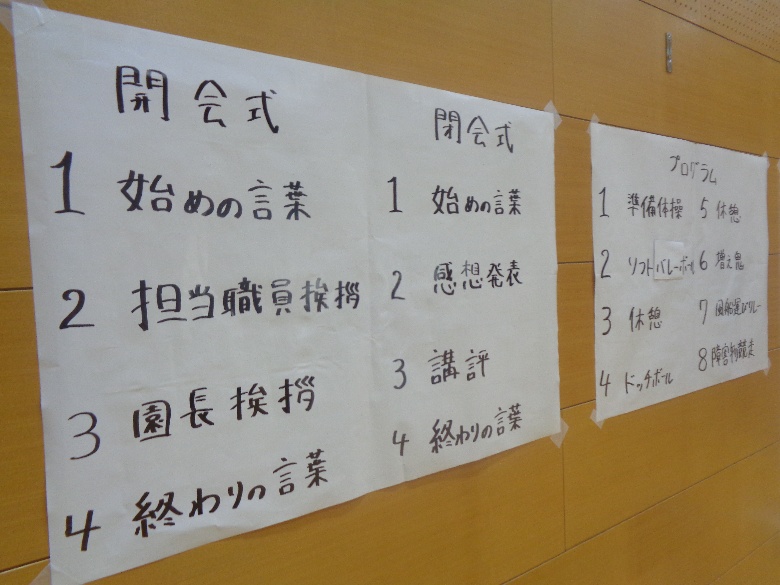 開会式
1 始めの言葉
2 担当職員挨拶
3 園長挨拶
4 終わりの言葉
閉会式
1 始めの言葉
2 感想発表
3 講評
4 終わりの言葉
プログラム
1 準備体操
2 ソフトバレーボール
3 休憩
4 ドッヂボール
5 休憩
6 増え鬼
7 風船運びリレー
8 障害物競走